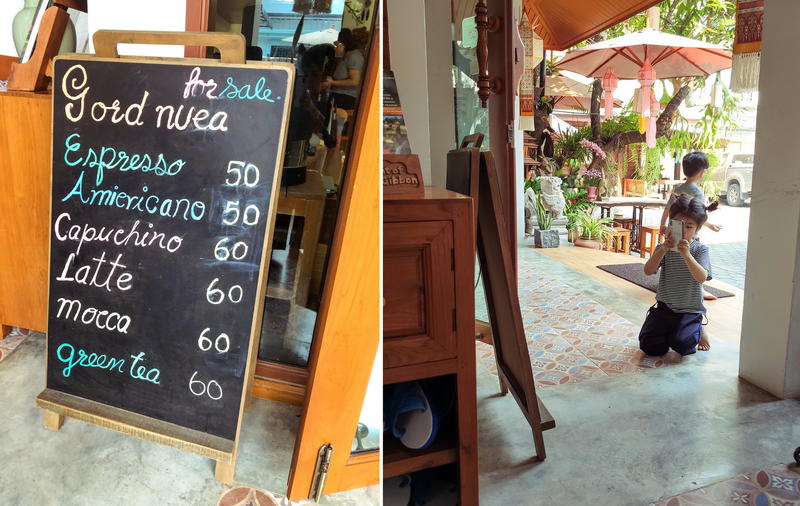 for sale.
Gord nuea
Espresso 50
Amiericano 50
Capuchino 60
Latte 60
mocca 60
green tea 60